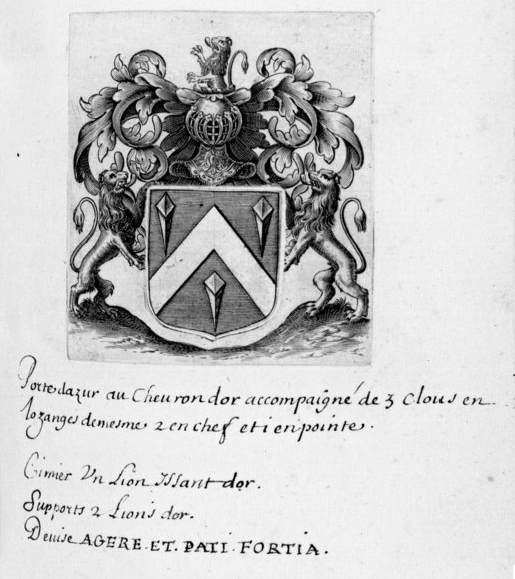 Porte dazur au Cheuron dor accompaigné de 3 Clous en
lozanges demesme 2 en chef et i en pointe.
Cimier Vn Lion Issant dor.
Supports 2 Lions dor.
Deuise AGERE. ET. PATI. FORTIA.